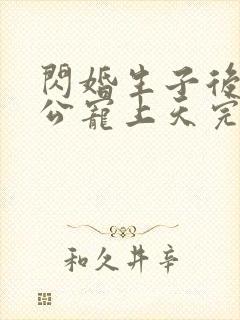 閃婚生子後
公寵上天完
和久井辛